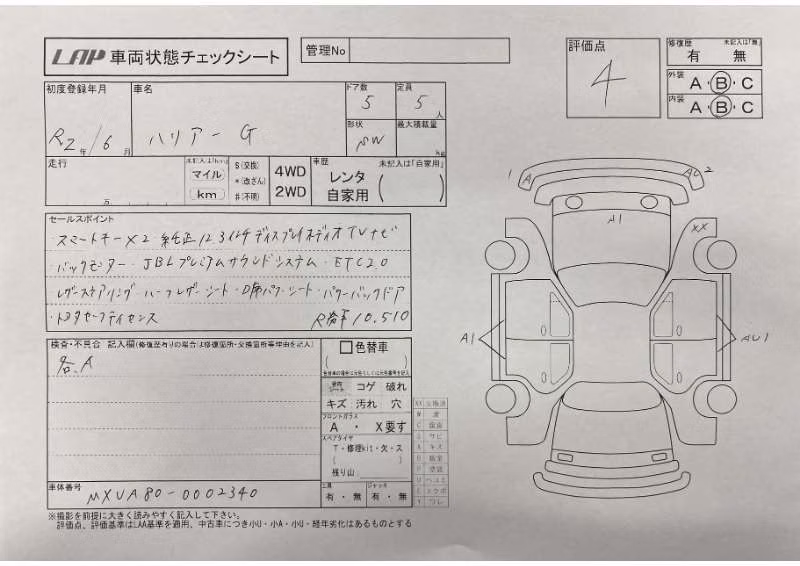 LAP 車両状態チェックシート
管理No
評価点
4
修復歴 未記入は「無」
有 無
外装 A・B・C
内装 A・B・C
初度登録年月
R2年/6月
車名
ハリアー G
ドア数
5
定員
5人
形状
SW
最大積載量
kg
走行
万
未記入は「km」
マイル
km
$(交換)
*(改ざん)
#(不明)
4WD
2WD
車歴 未記入は「自家用」
レンタ
自家用
セールスポイント
・スマートキー×2・純正12.3インチディスプレイオーディオTVナビ
・バックモニター・JBLプレミアムサウンドシステム・ETC2.0
・レザーステアリング・ハーフレザーシート・D席パワーシート・パワーバックドア
・トヨタセーフティセンス
R券¥10,510
検査・不具合 記入欄(修復歴有りの場合は修復箇所・交換箇所等牢由を記入)
各.A
色替車
( )
コゲ 破れ
キズ 汚れ 穴
フロントガラス
A ・ X要す
スペアタイヤ
T・修理kit・欠・ス
( )
残り山
工具
有・無
ジャッキ
有・無
車体番号
MXUA80-0002340
※撮影を前提に大きく読みやすく記入して下さい。
評価点、評価基準はLAA基準を適用、中古車につき小U・小A・小U・経年劣化はあるものとする
1
A
AU2
A1
XX
A1
AU1
XX 交換済
W 波
C 腐食
S サビ
A キス
P 塗装
U ヘコミ
E エクボ
Y ワレ